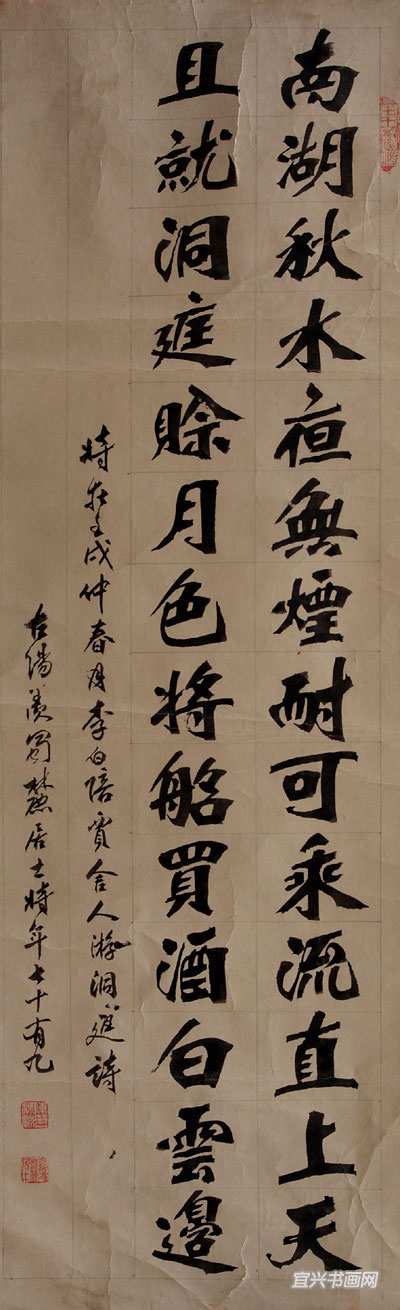 南湖秋水夜無煙耐可乘流直上天
且就洞庭賒月色將船買酒白雲邊
時在壬戌仲春月李白陪賈舍人游洞庭詩
古陽羨蜀麓居士時年七十有九
宜兴书画网